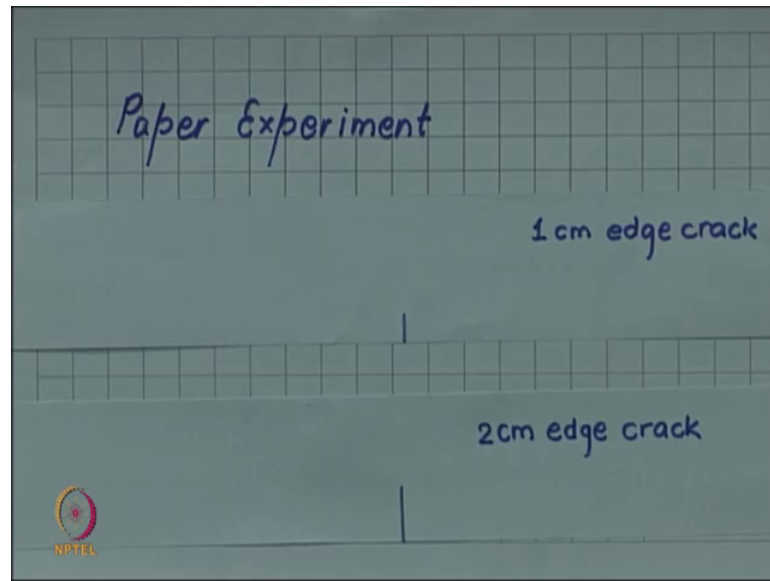 Paper Experiment
1 cm edge crack
2cm edge crack
NPTEL